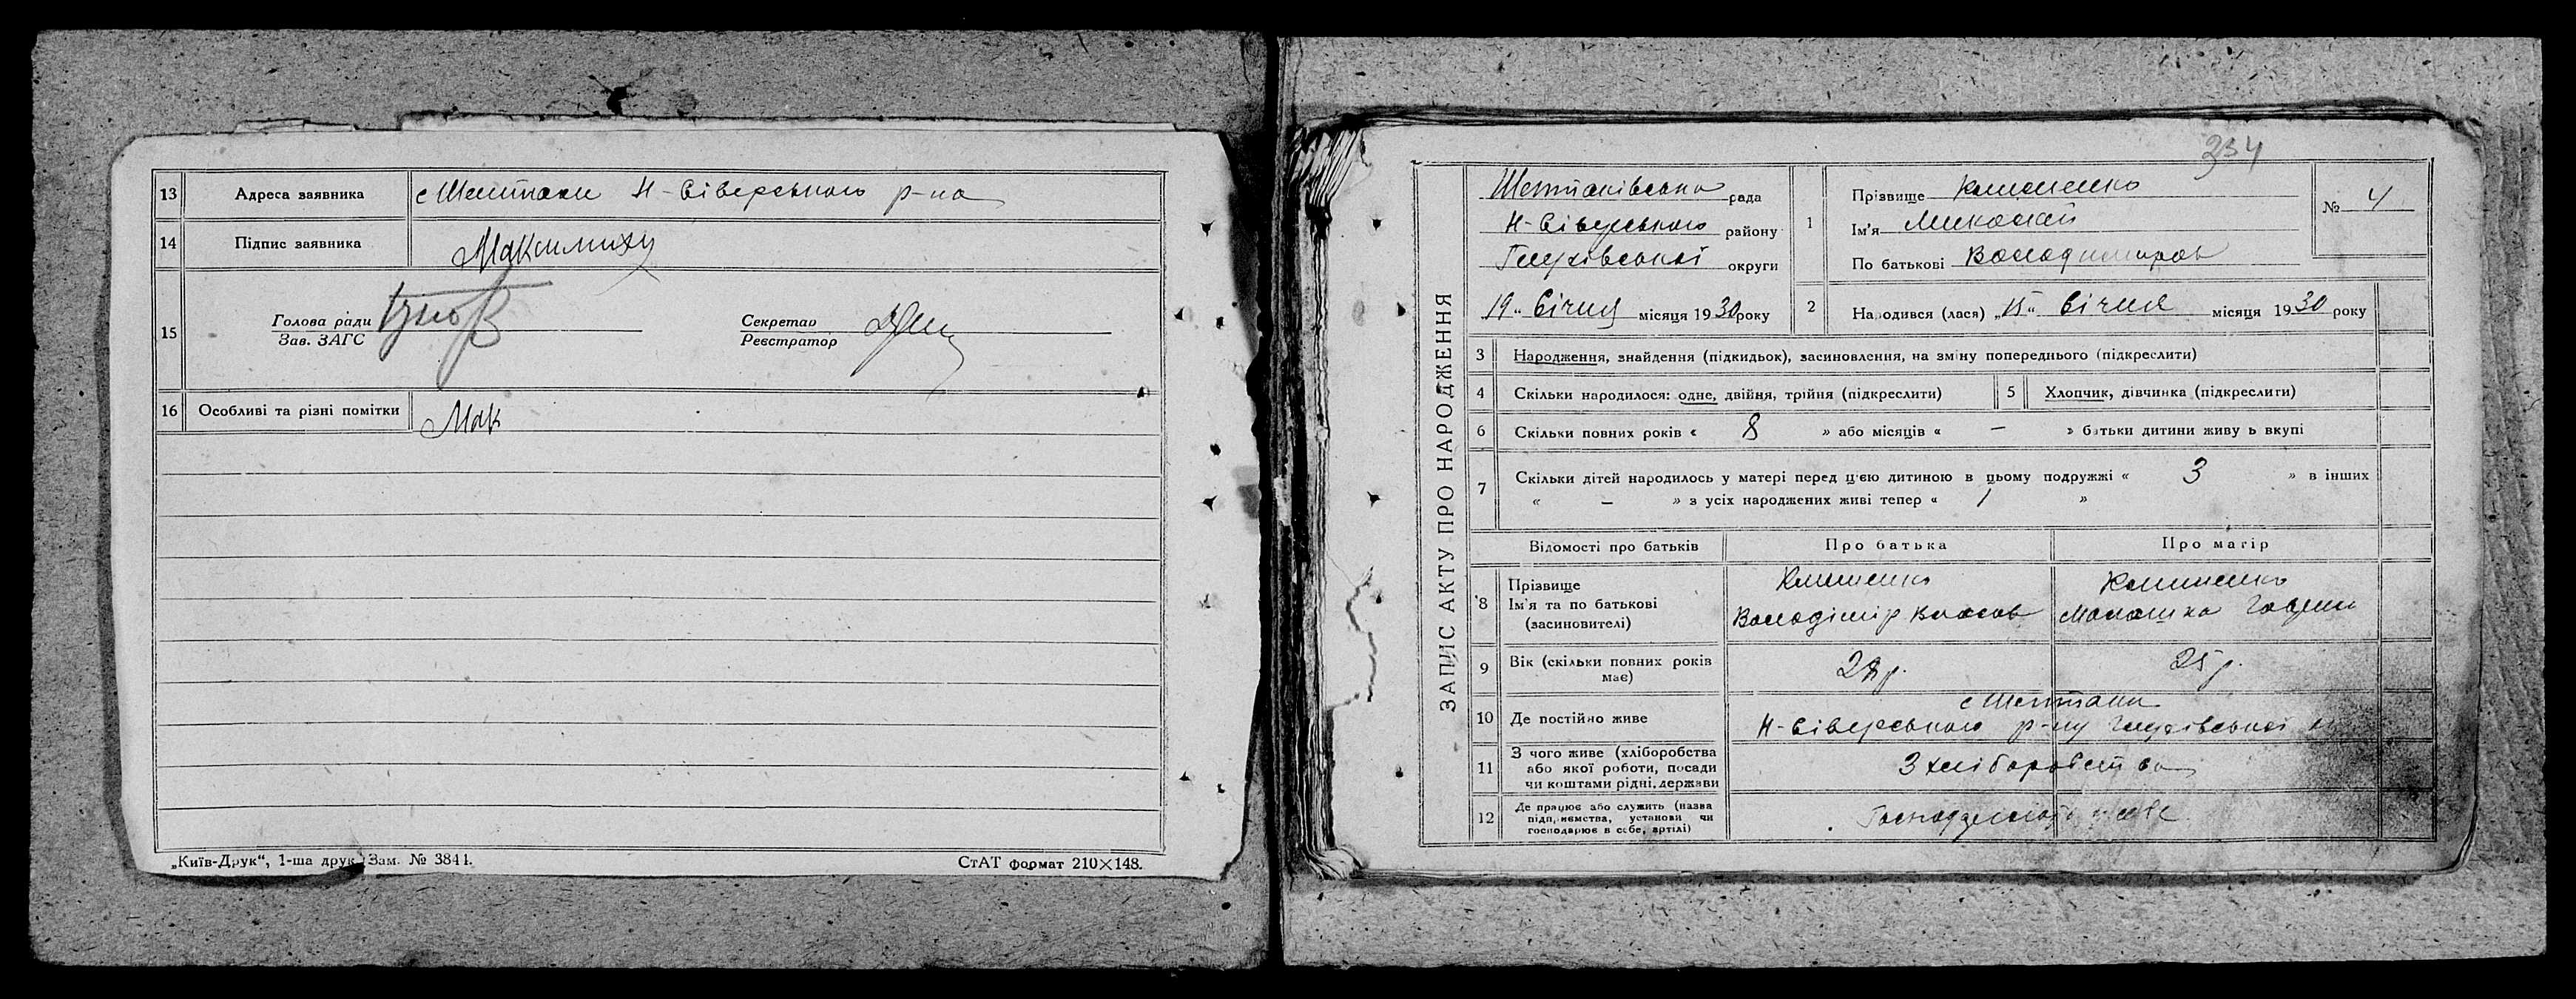 13 Адреса заявника с Шептаки Н-Сіверського р-на
14 Підпис заявника
15 Голова ради Секретар
Зав. ЗАГС Реєстратор
16 Особливі та різні помітки Мак
„Київ-Друк“, 1-ша друк. Зам. № 3844. СтАТ формат 210×148.
334
ЗАПИС АКТУ ПРО НАРОДЖЕННЯ
Шептаківська рада
Н-Сіверського району
Глухівської округи
19 „ Січня місяця 1930 року
1 Прізвище Клименко
Ім'я Миколай
По батькові Володимиров
№ 4
2 Народився (лася) „15“ Січня місяця 1930 року
3 Народження, знайдення (підкидьок), засиновлення, на зміну попереднього (підкреслити)
4 Скільки народилося: одне, двійня, трійня (підкреслити) 5 Хлопчик, дівчинка (підкреслити)
6 Скільки повних років « 8 » або місяців « — » батьки дитини живуть вкупі
7 Скільки дітей народилось у матері перед цією дитиною в цьому подружжі « 3 » в інших
« — » з усіх народжених живі тепер « 1 »
Відомості про батьків Про батька Про матір
8 Прізвище Клименко Клименко
Ім'я та по батькові Володімір Власов Малашка
(засновителі)
9 Вік (скільки повних років має) 28 р. 25 р.
10 Де постійно живе с Шептаки
Н-Сіверського р-ну Глухівської
11 З чого живе (хліборобства
або якої роботи, посади
чи коштами рідні, держави
З хліборобства
12 Де працює або служить (назва
підприємства, установи чи
господарює в себе, артілі)